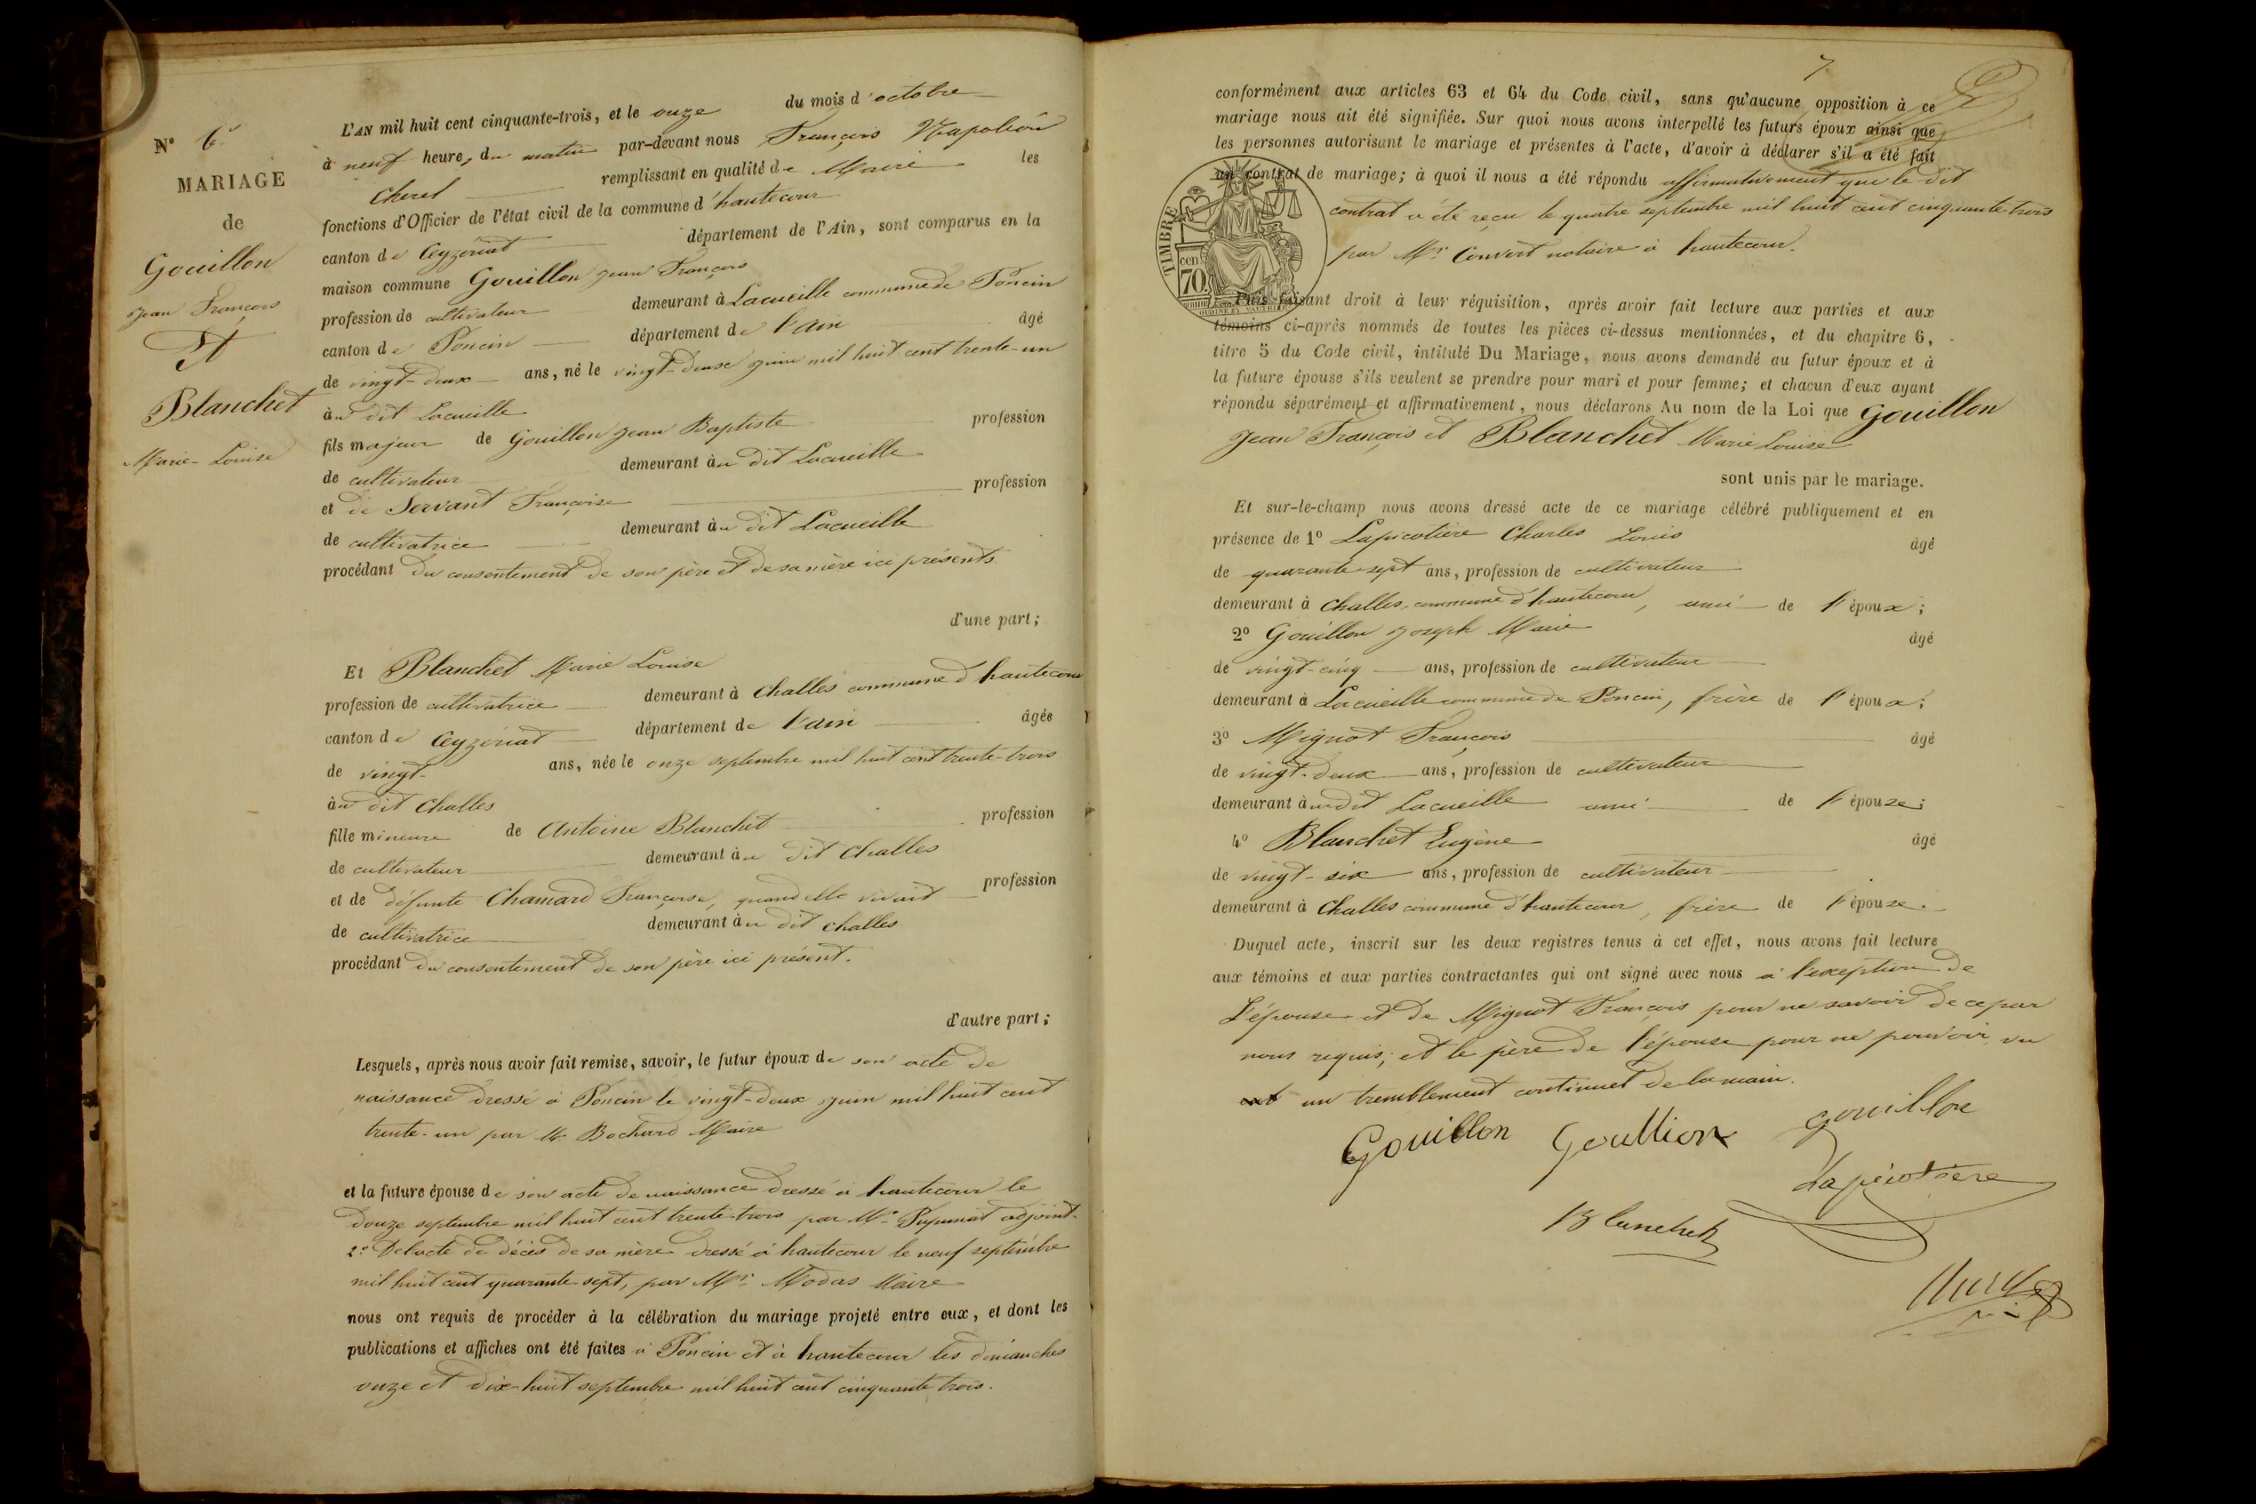 N° 6
MARIAGE
de
Gouillon
Jean François
Et
Blanchet
Marie-Louise
L'AN mil huit cent cinquante-trois, et le onze du mois d'octobre
à neuf heures du matin par-devant nous François Napoléon
remplissant en qualité de Maire les
fonctions d'Officier de l'état civil de la commune d'hautecour
canton de Ceyzériat département de l'Ain, sont comparus en la
maison commune Gouillon Jean François
profession de cultivateur demeurant à Lacueille commune de Poncin
canton de Poncin département de l'ain âgé
de vingt-deux ans, né le vingt-deuse juin mil huit cent trente-un
àu dit Lacueille
fils majeur de Gouillon Jean Baptiste profession
de cultivateur demeurant àu dit Lacueille
et de Servant Françoise profession
de cultivatrice demeurant àu dit Lacueille
procédant du consentement de son père et de sa mère ici présents
d'une part;
Et Blanchet Marie Louise
profession de cultivatrice demeurant à Challes commune d'hautecour
canton de Ceyzériat département de l'ain âgée
de vingt ans, née le onze septembre mil huit cent trente-trois
àu dit Challes
fille mineure de Antoine Blanchet profession
de cultivateur demeurant àu dit Challes
et de défunte Chamard Françoise, quand elle vivait profession
de cultivatrice demeurant àu dit Challes
procédant du consentement de son père ici présent.
d'autre part;
Lesquels, après nous avoir fait remise, savoir, le futur époux de son acte de
naissance dressé à Poncin le vingt-deux juin mil huit cent
trente-un par Mr Bochard Maire
et la future épouse de son acte de naissance dressé à hautecour le
douze septembre mil huit cent trente-trois par Mr adjoint.
2° De l'acte de décès de sa mère dressé à hautecour le neuf septembre
mil huit cent quarante-sept, par Mr Modas Maire
nous ont requis de procéder à la célébration du mariage projeté entre eux, et dont les
publications et affiches ont été faites à Poncin et à hautecour les dimanches
onze et dix-huit septembre mil huit cent cinquante trois.
7
conformément aux articles 63 et 64 du Code civil, sans qu'aucune opposition à ce
mariage nous ait été signifiée. Sur quoi nous avons interpellé les futurs époux ainsi que
les personnes autorisant le mariage et présentes à l'acte, d'avoir à déclarer s'il a été fait
un contrat de mariage; à quoi il nous a été répondu affirmativement que le dit
contrat a été reçu le quatre septembre mil huit cent cinquante-trois
par Mr Convert notaire à hautecour.
TIMBRE
cen
70.
Puis faisant droit à leur réquisition, après avoir fait lecture aux parties et aux
témoins ci-après nommés de toutes les pièces ci-dessus mentionnées, et du chapitre 6,
titre 5 du Code civil, intitulé Du Mariage, nous avons demandé au futur époux et à
la future épouse s'ils veulent se prendre pour mari et pour femme; et chacun d'eux ayant
répondu séparément et affirmativement, nous déclarons Au nom de la Loi que Gouillon
Jean François et Blanchet Marie Louise
sont unis par le mariage.
Et sur-le-champ nous avons dressé acte de ce mariage célébré publiquement et en
présence de 1° Lapicotière Charles Louis âgé
de quarante-sept ans, profession de cultivateur
demeurant à Challes, commune d'hautecour, ami de l'époux;
2° Gouillon Joseph Marie âgé
de vingt-cinq ans, profession de cultivateur
demeurant à Lacueille commune de Poncin, frère de l'époux;
3° Mignot François âgé
de vingt-deux ans, profession de cultivateur
demeurant àudit Lacueille ami de l'épouse;
4° Blanchet Eugène âgé
de vingt-six ans, profession de cultivateur
demeurant à Challes commune d'hautecour, frère de l'épouse.
Duquel acte, inscrit sur les deux registres tenus à cet effet, nous avons fait lecture
aux témoins et aux parties contractantes qui ont signé avec nous à l'exception de
l'épouse et de Mignot François pour ne savoir de ce par
nous requis; et le père de l'épouse pour ne pouvoir vu
un tremblement continuel de la main.
Gouillon Goullion gouillon
Lapicotière
Blanchet